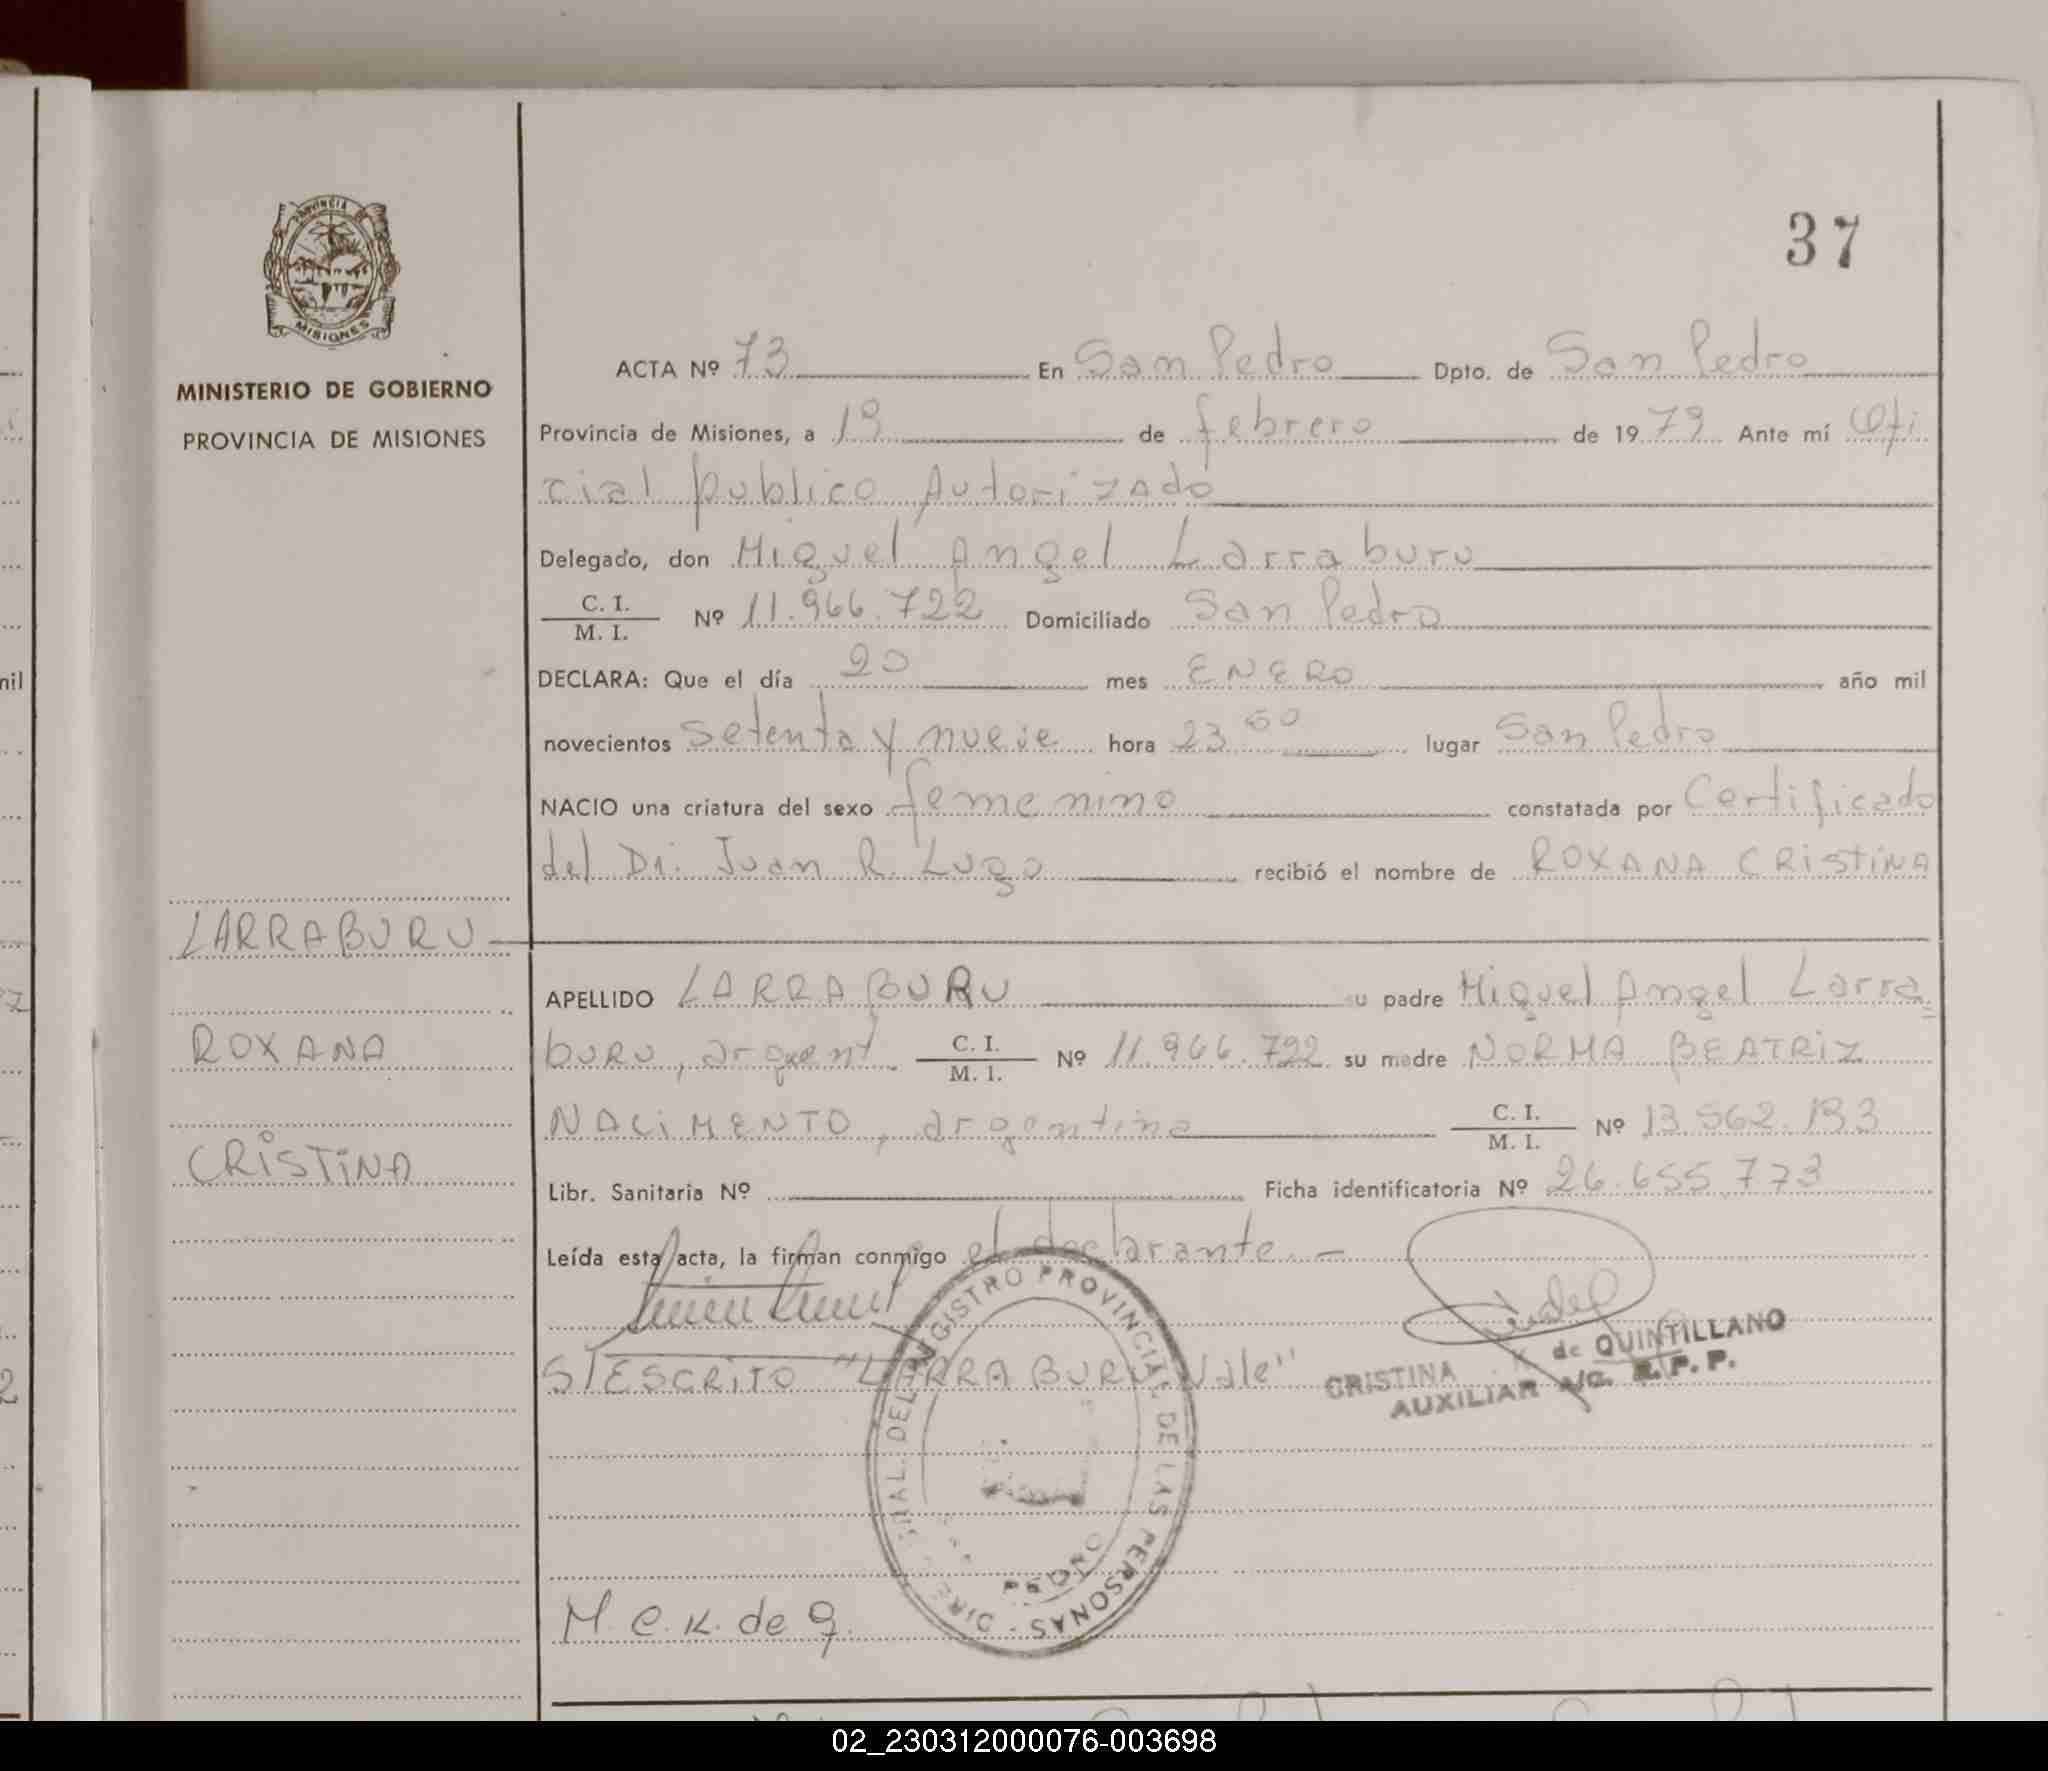 37
PROVINCIA DE
MISIONES
MINISTERIO DE GOBIERNO
PROVINCIA DE MISIONES
ACTA Nº 73 En San Pedro Dpto. de San Pedro
Provincia de Misiones, a 19 de febrero de 1979 Ante mí Ofi
cial publico Autorizado
Delegado, don Miguel Angel Larraburu
C. I.
M. I. Nº 11.966.722 Domiciliado San Pedro
DECLARA: Que el día 20 mes ENERO año mil
novecientos setenta y nueve hora 23 lugar San Pedro
NACIO una criatura del sexo femenino constatada por Certificado
del Dr. Juan R. Lugo recibió el nombre de ROXANA CRISTINA
LARRABURU
APELLIDO LARRABURU su padre Miguel Angel Larra
ROXANA
buru, argent. C. I.
M. I. Nº 11.966.722 su madre NORMA BEATRIZ
NACIMENTO, argentina C. I.
M. I. Nº 13.562.193
CRISTINA
Libr. Sanitaria Nº Ficha identificatoria Nº 26.655.773
Leída esta acta, la firman conmigo el declarante.-
S/ESCRITO "LARRABURU Vale"
CRISTINA K. de QUINTILLANO
AUXILIAR A/C. R. P. P.
REGISTRO PROVINCIAL DE LAS PERSONAS
PEDRO
M. C. K. de Q.
nil
2
02_230312000076-003698